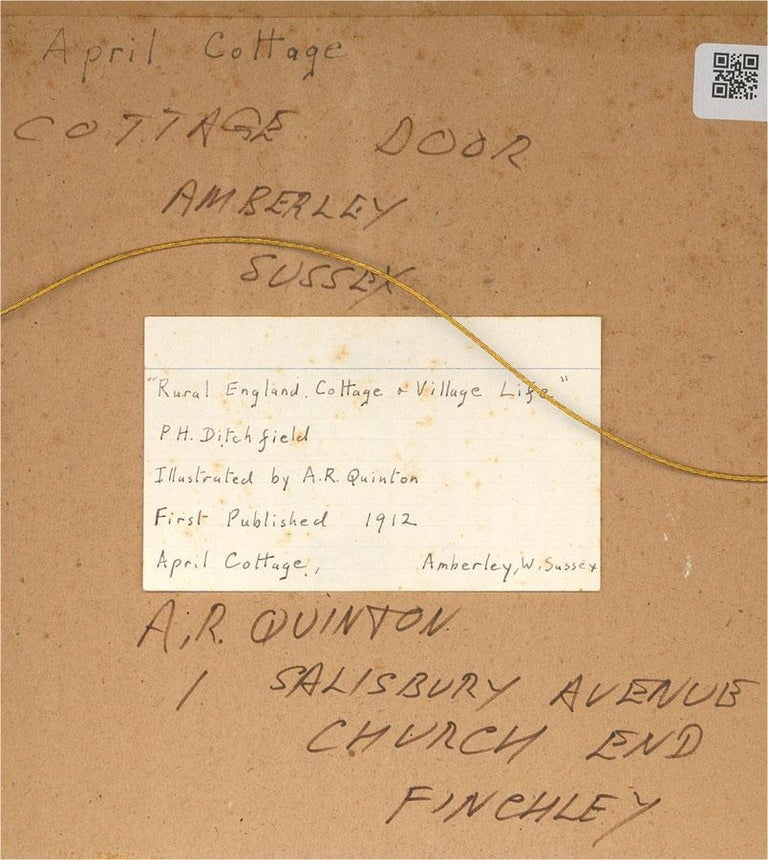 April Cottage
COTTAGE DOOR
AMBERLEY
SUSSEX
"Rural England. Cottage & Village Life"
P.H. Ditchfield
Illustrated by A.R. Quinton
First Published 1912
April Cottage, Amberley, W. Sussex
A.R. QUINTON
1 SALISBURY AVENUE
CHURCH END
FINCHLEY